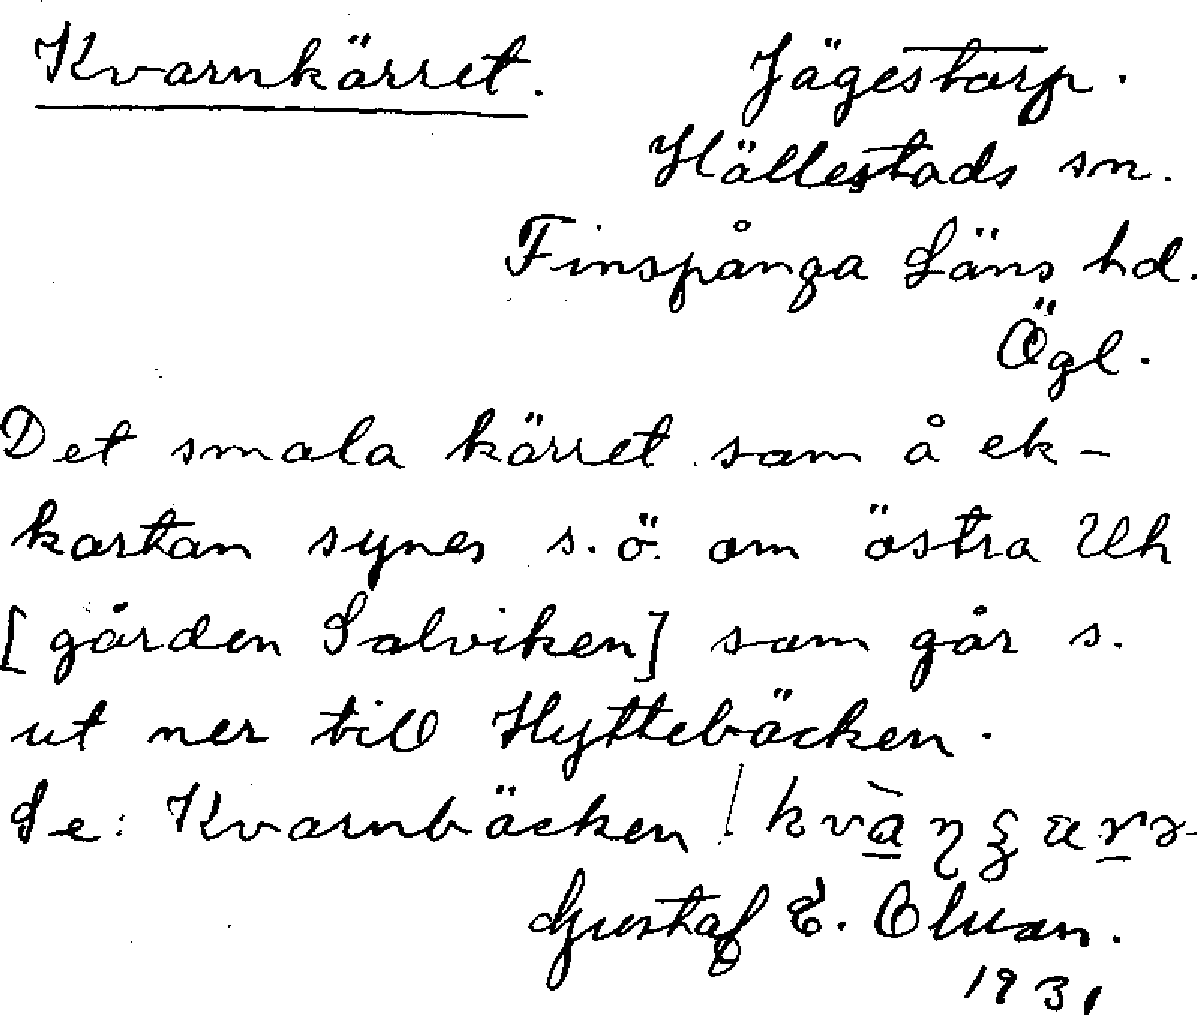 Kvarnkärret. Jägestorp.
Hällestads sn.
Finspånga Läns hd.
Ögl.
Det smala kärret som å ek-
kartan synes s.ö. om östra Uh
[gården Salviken] som går s.
ut ner till Hyttebäcken.
Se: Kvarnbäcken!
Gustaf E.
1931